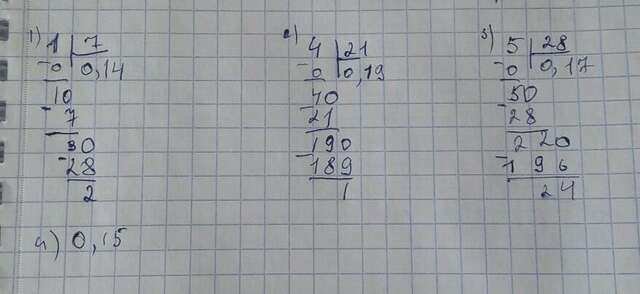 1) 1 7
-0 0,14
10
-7
30
-28
2
2) 4 21
-0 0,19
40
-21
190
-189
1
3) 5 28
-0 0,17
50
-28
220
-196
24
4) 0,15